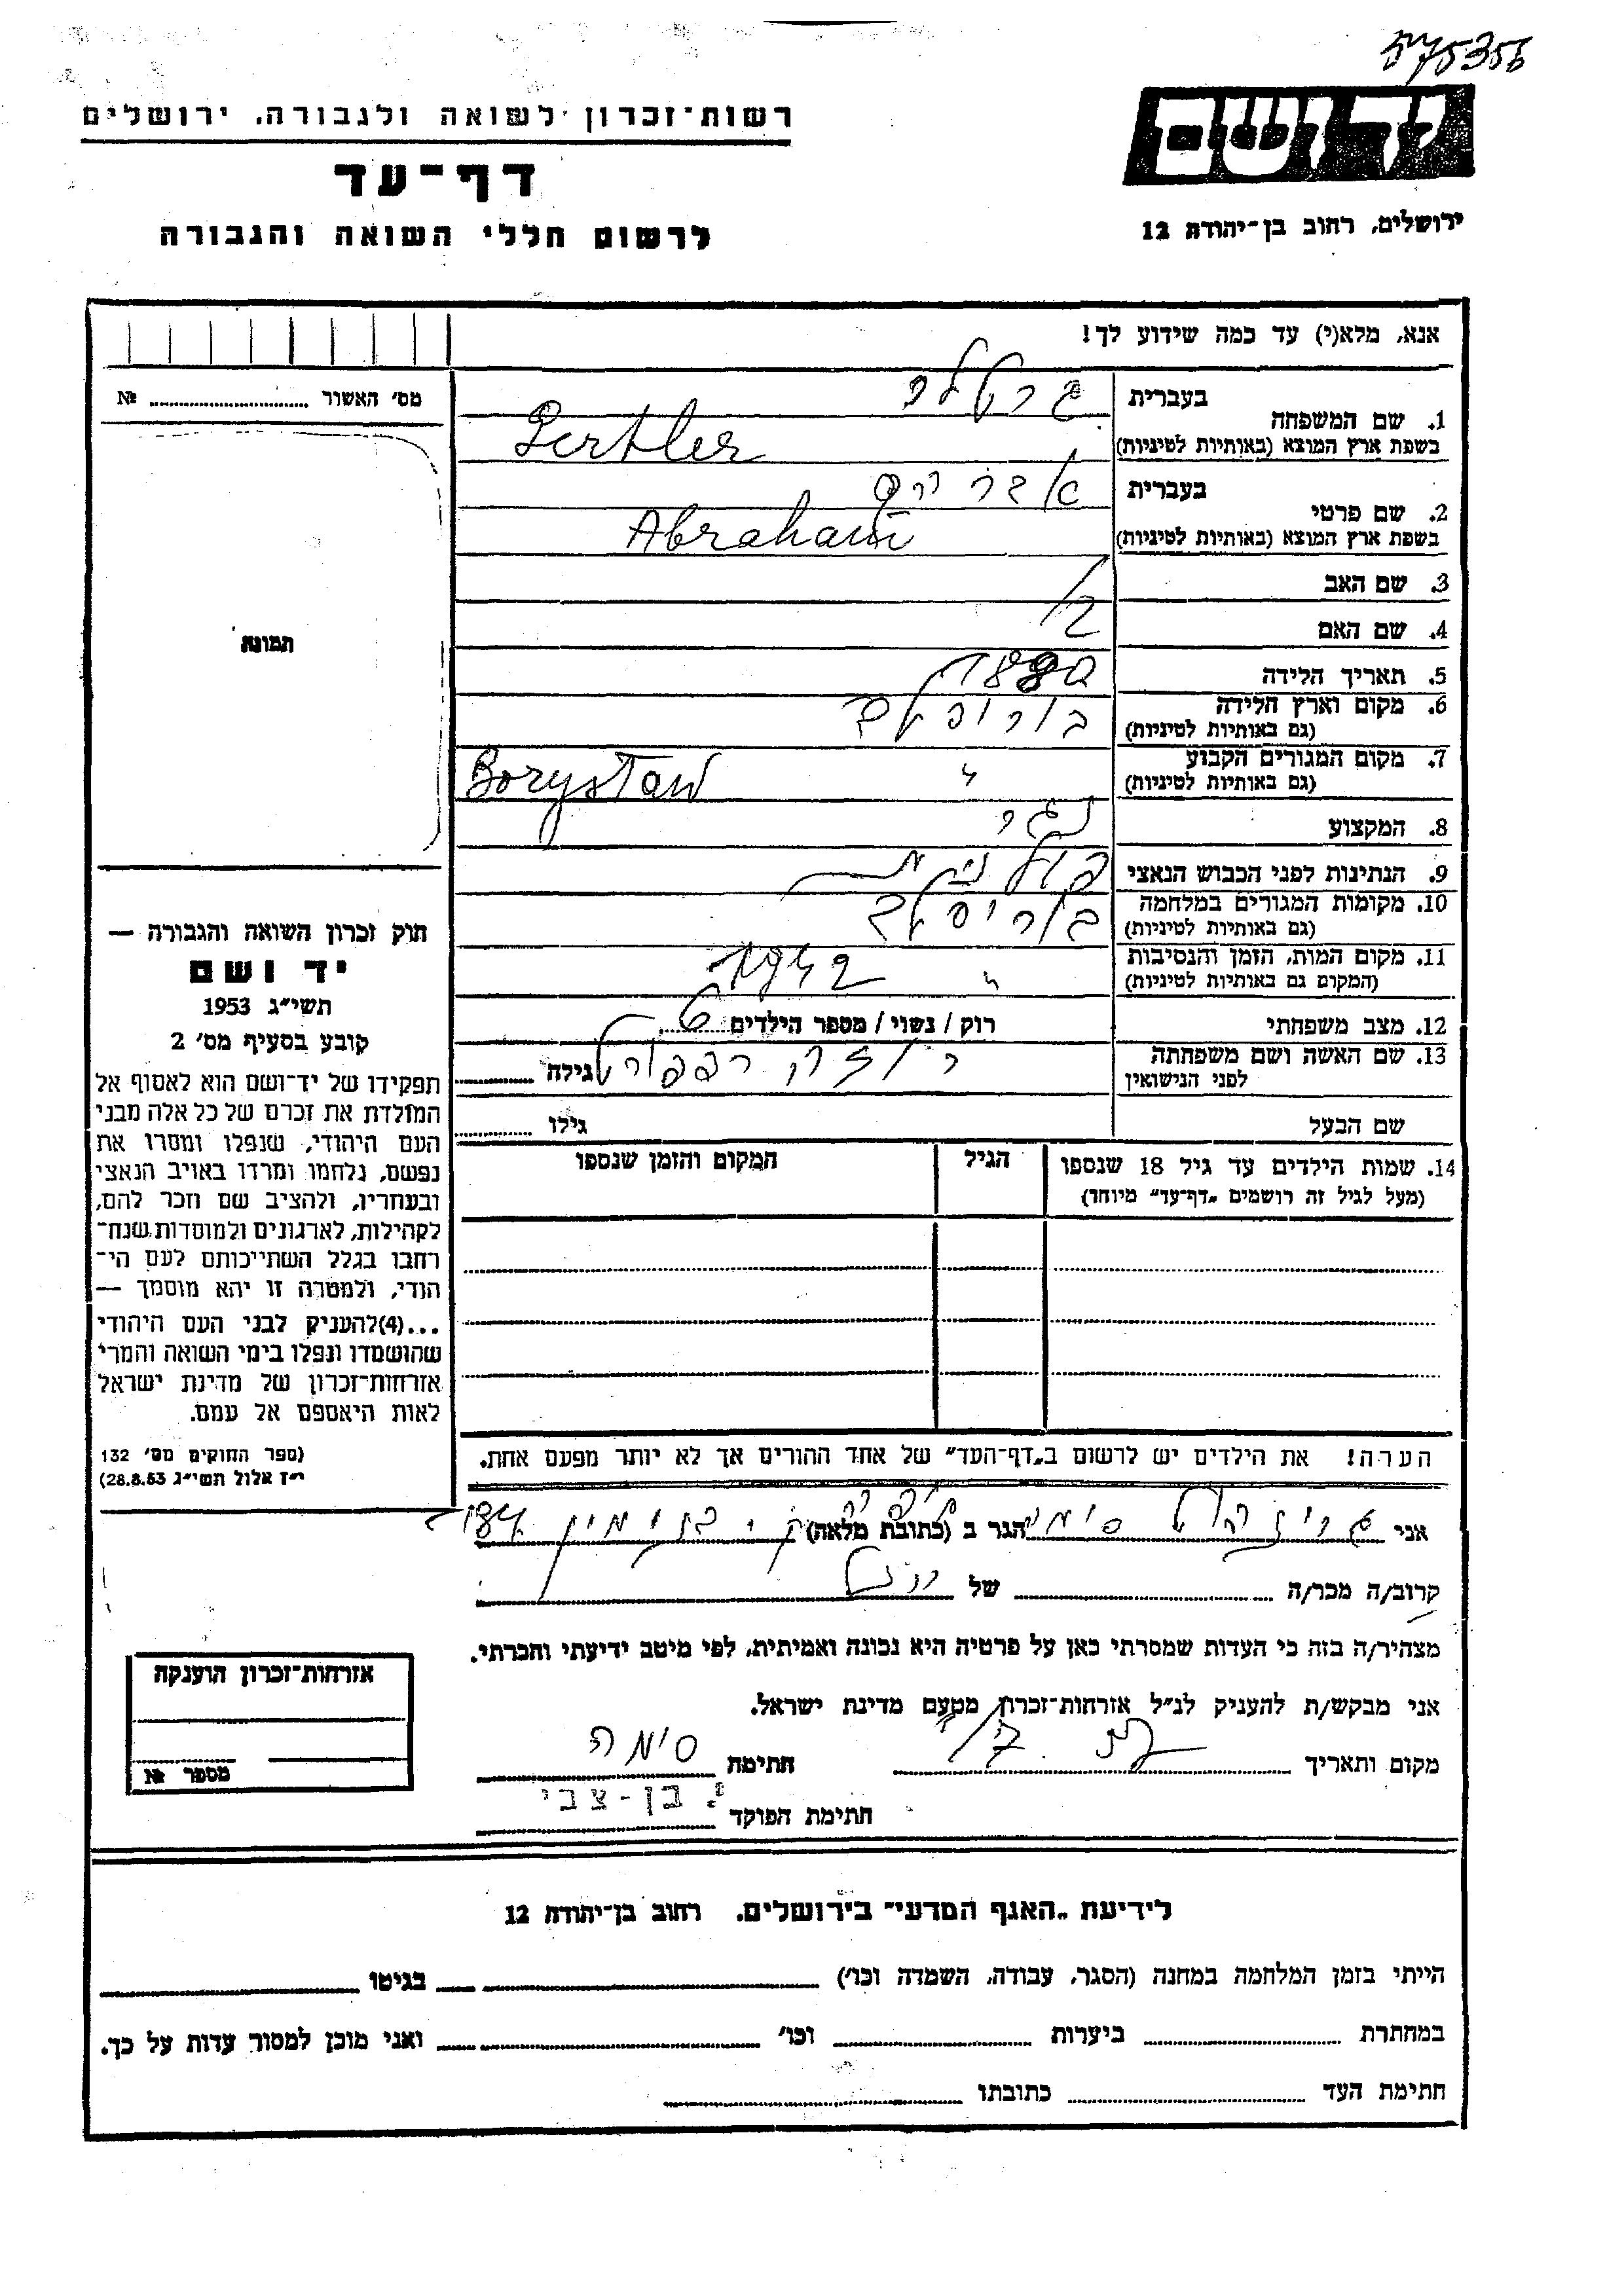 575356
רשות־זכרון לשואה ולגבורה, ירושלים
דף־עד
לרשום חללי השואה והגבורה
יד ושם
ירושלים, רחוב בן־יהודה 12
אנא, מלא(י) עד כמה שידוע לך!
מס׳ האשור № ........
1. שם המשפחה
בעברית גרטלר
בשפת ארץ המוצא (באותיות לטיניות) Gertler
2. שם פרטי
בעברית אברהם
בשפת ארץ המוצא (באותיות לטיניות) Abraham
3. שם האב
4. שם האם
5. תאריך הלידה
6. מקום וארץ הלידה
(גם באותיות לטיניות)
7. מקום המגורים הקבוע " Borystaw
(גם באותיות לטיניות)
8. המקצוע נגר
9. הנתינות לפני הכבוש הנאצי פולנית
10. מקומות המגורים במלחמה בוריסלב
(גם באותיות לטיניות)
11. מקום המות, הזמן והנסיבות " 1942
(המקום גם באותיות לטיניות)
12. מצב משפחתי רוק / נשוי / מספר הילדים
13. שם האשה ושם משפחתה רוזה רפפורט גילה ........
לפני הנישואין
שם הבעל גילו ........
14. שמות הילדים עד גיל 18 שנספו הגיל המקום והזמן שנספו
(מעל לגיל זה רושמים „דף־עד" מיוחד)
הערה! את הילדים יש לרשום ב„דף־העד" של אחד ההורים אך לא יותר מפעם אחת.
תמונה
חוק זכרון השואה והגבורה —
יד ושם
תשי״ג 1953
קובע בסעיף מס׳ 2
תפקידו של יד־ושם הוא לאסוף אל
המולדת את זכרם של כל אלה מבני
העם היהודי, שנפלו ומסרו את
נפשם, נלחמו ומרדו באויב הנאצי
ובעחריו, ולהציב שם וזכר להם,
לקהילות, לארגונים ולמוסדות שנח־
רחבו בגלל השתייכותם לעם הי־
הודי, ולמטרה זו יהא מוסמך —
...(4)להעניק לבני העם היהודי
שהושמדו ונפלו בימי השואה והמרי
אזרחות־זכרון של מדינת ישראל
לאות היאספם אל עמם.
(ספר החוקים מס׳ 132
י״ז אלול תשי״ג 28.8.53)
אני סימה הגר ב (כתובת מלאה) ק. בנימין
קרוב/ה מכר/ה ........ של
מצהיר/ה בזה כי העדות שמסרתי כאן על פרטיה היא נכונה ואמיתית, לפי מיטב ידיעתי והכרתי.
אני מבקש/ת להעניק לנ״ל אזרחות־זכרון מטעם מדינת ישראל.
מקום ותאריך חתימה סימה
חתימת הפוקד י. בן-צבי
אזרחות־זכרון הוענקה
מספר №
לידיעת „האגף המדעי" בירושלים, רחוב בן־יהודה 12
הייתי בזמן המלחמה במחנה (הסגר, עבודה, השמדה וכו׳) ........ בגיטו ........
במחתרת ........ ביערות ........ וכו׳ ........ ואני מוכן למסור עדות על כך.
חתימת העד ........ כתובתו ........